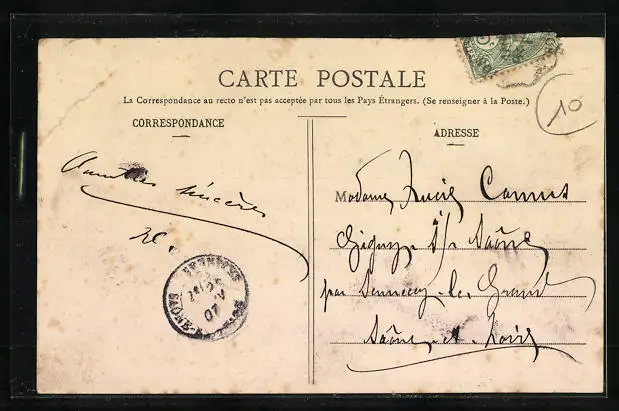 CARTE POSTALE
La Correspondance au recto n'est pas acceptée par tous les Pays Étrangers. (Se renseigner à la Poste.)
CORRESPONDANCE
ADRESSE
10
Amitiés sincères
Madame Lucie
Gigny s/ Saône
par Sennecey-le-Grand
Saône-et-Loire
SAÔNE